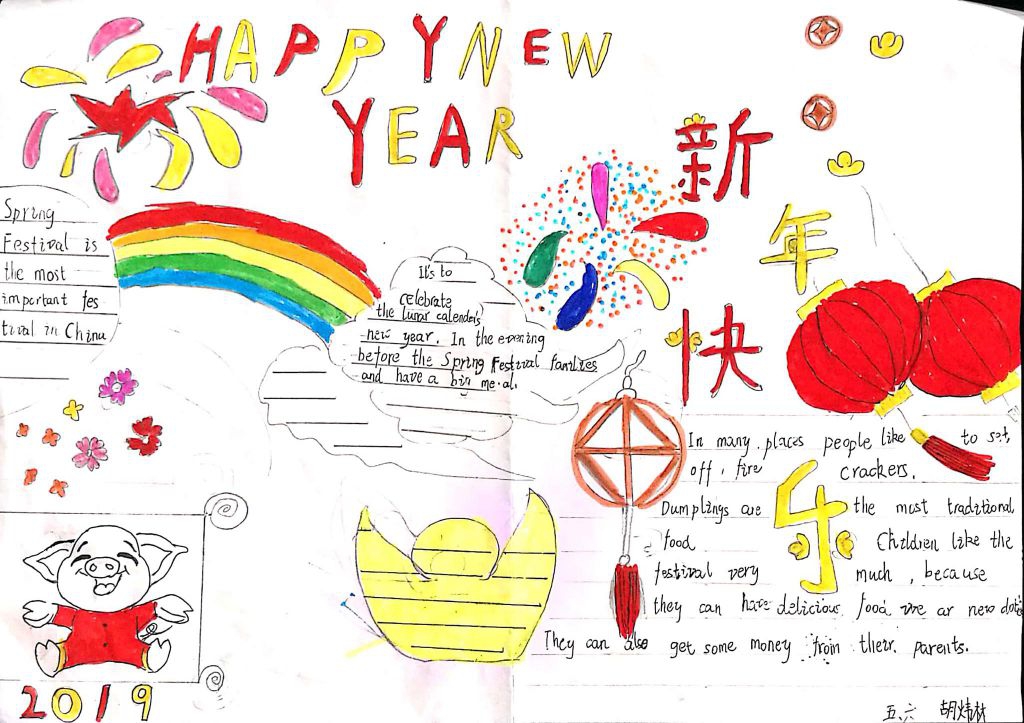 HAPPY NEW
YEAR
新
年
快
乐
Spring
Festival is
the most
important fes
tival in China
It's to
celebrate
the lunar calendar's
new year. In the evening
before the Spring Festival families
and have a big meal.
In many places people like to set
off, fire crackers.
Dumplings are the most traditional
food Children like the
festival very much, because
they can have delicious food we ar new
They can also get some money from their parents.
2019
五、六